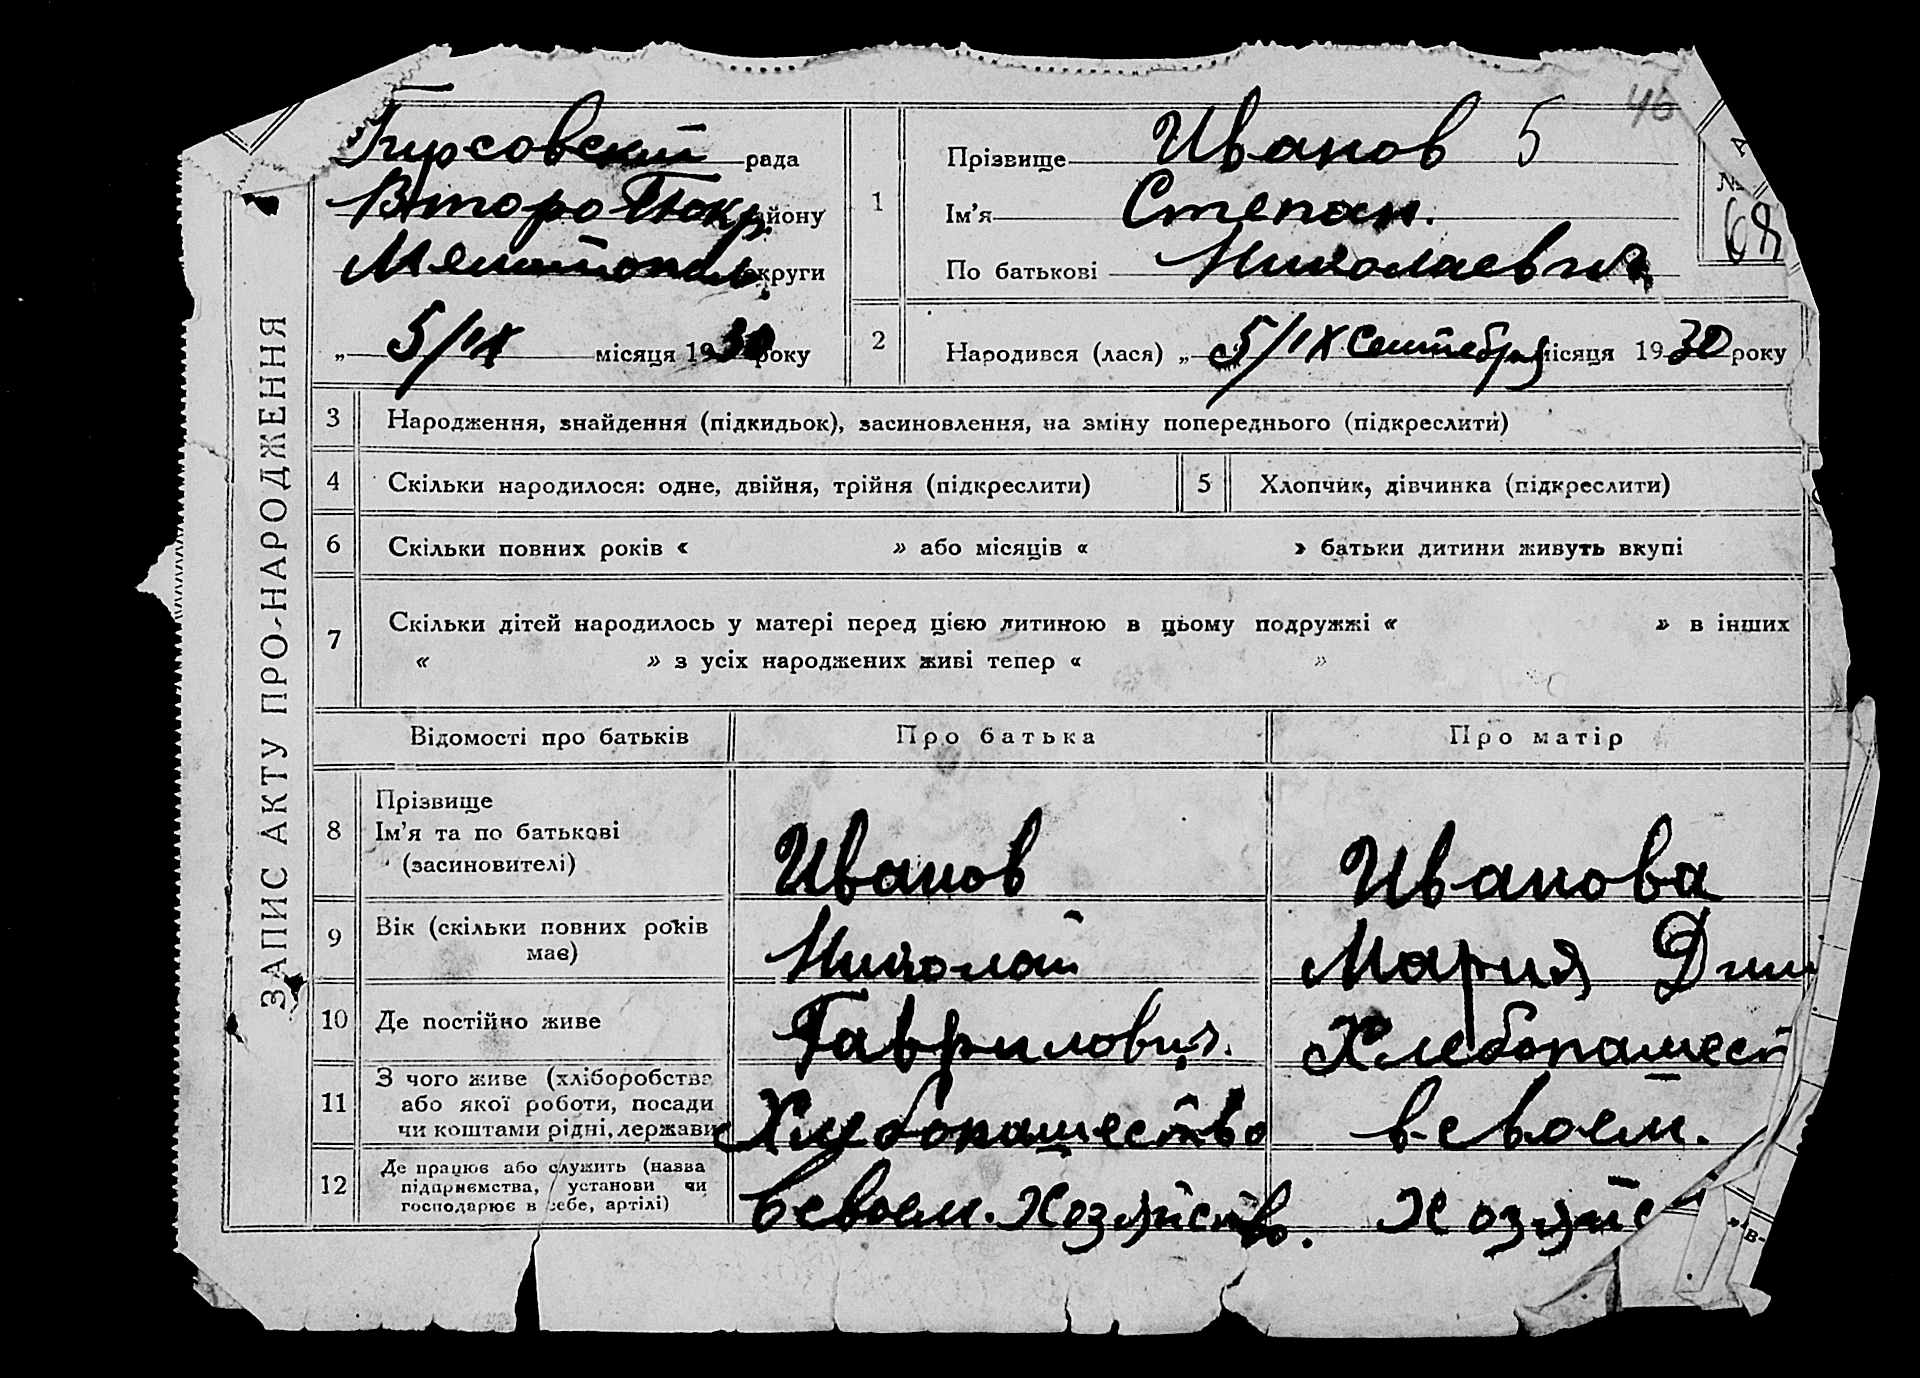 46
Гирсовский рада
Второ Покр. району
Мелитополь. округи
„ 5/IX місяця 1930 року
ЗАПИС АКТУ ПРО НАРОДЖЕННЯ
1
Прізвище Иванов 5
Ім'я Степан.
По батькові Николаевич
№
69
2
Народився (лася) „ 5/IX Сентября місяця 1930 року
3 Народження, знайдення (підкидьок), засиновлення, на зміну попереднього (підкреслити)
4 Скільки народилося: одне, двійня, трійня (підкреслити)
5 Хлопчик, дівчинка (підкреслити)
6 Скільки повних років « » або місяців « » батьки дитини живуть вкупі
7 Скільки дітей народилось у матері перед цією дитиною в цьому подружжі « » в інших
« » з усіх народжених живі тепер « »
Відомості про батьків Про батька Про матір
8 Прізвище
Ім'я та по батькові
(засиновителі)
Иванов Иванова
9 Вік (скільки повних років
має)
Николай Мария Дми
10 Де постійно живе Гаврилович. Хлебопашест
11 З чого живе (хліборобства
або якої роботи, посади
чи коштами рідні, держави
Хлебопашество в своем.
12 Де працює або служить (назва
підприємства, установи чи
господарює в себе, артілі)
в своем. Хозяйств. Хозяйс
"в-